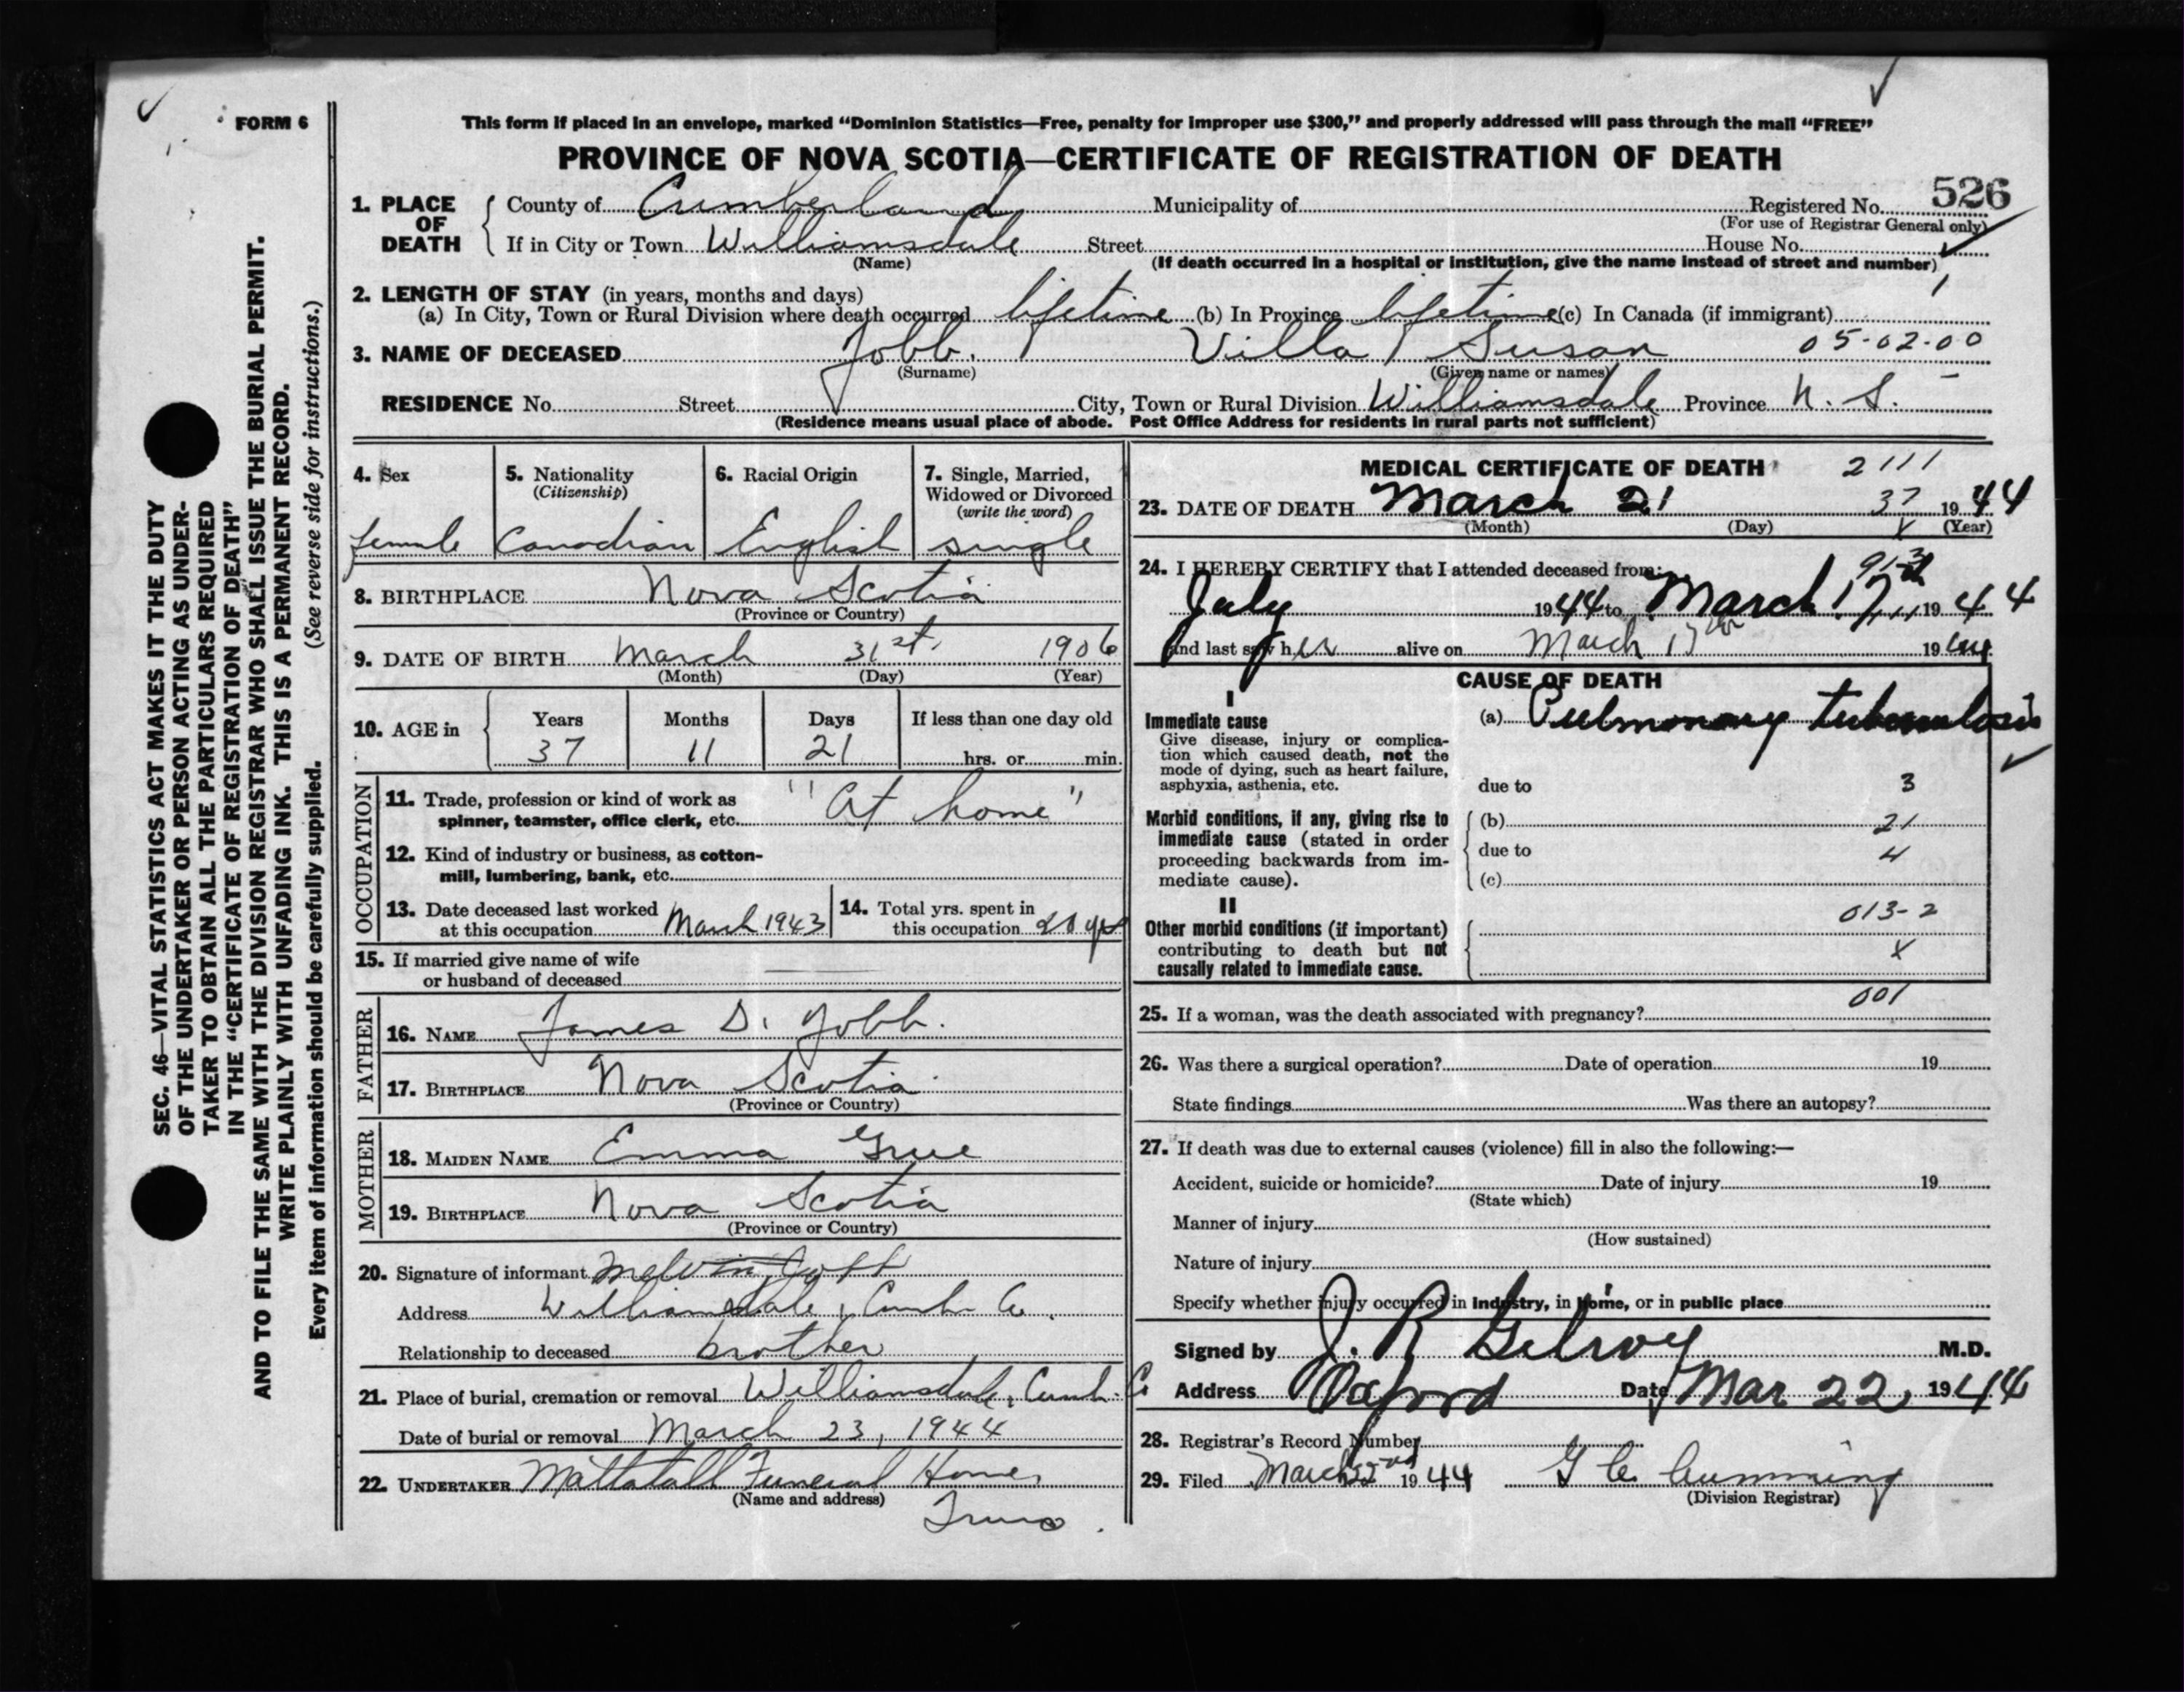 FORM 6
This form if placed in an envelope, marked “Dominion Statistics—Free, penalty for improper use $300,” and properly addressed will pass through the mail “FREE”
PROVINCE OF NOVA SCOTIA—CERTIFICATE OF REGISTRATION OF DEATH
526
1. PLACE OF DEATH County of Cumberland Municipality of Registered No.
(For use of Registrar General only)
If in City or Town Williamsdale Street House No.
(Name) (If death occurred in a hospital or institution, give the name instead of street and number)
2. LENGTH OF STAY (in years, months and days)
(a) In City, Town or Rural Division where death occurred lifetime (b) In Province lifetime (c) In Canada (if immigrant)
3. NAME OF DECEASED Jobb. Villa Susan 05-02-00
(Surname) (Given name or names)
RESIDENCE No. Street City, Town or Rural Division Williamsdale Province N. S.
(Residence means usual place of abode. Post Office Address for residents in rural parts not sufficient)
4. Sex female
5. Nationality (Citizenship) Canadian
6. Racial Origin English
7. Single, Married, Widowed or Divorced (write the word) single
8. BIRTHPLACE Nova Scotia
(Province or Country)
9. DATE OF BIRTH March 31st. 1906
(Month) (Day) (Year)
10. AGE in Years Months Days If less than one day old
37 11 21 hrs. or min.
OCCUPATION
11. Trade, profession or kind of work as
spinner, teamster, office clerk, etc. "At home"
12. Kind of industry or business, as cotton-
mill, lumbering, bank, etc.
13. Date deceased last worked
at this occupation March 1943
14. Total yrs. spent in
this occupation 20 yrs
15. If married give name of wife
or husband of deceased
FATHER
16. NAME James D. Jobb.
17. BIRTHPLACE Nova Scotia
(Province or Country)
MOTHER
18. MAIDEN NAME Emma Grue
19. BIRTHPLACE Nova Scotia
(Province or Country)
20. Signature of informant Melvin Jobb
Address Williamsdale, Cumb. Co.
Relationship to deceased brother
21. Place of burial, cremation or removal Williamsdale, Cumb. Co
Date of burial or removal March 23, 1944
22. UNDERTAKER Mattatall Funeral Home,
(Name and address)
Truro.
MEDICAL CERTIFICATE OF DEATH 2111
23. DATE OF DEATH March 21 37 1944
(Month) (Day) X (Year)
24. I HEREBY CERTIFY that I attended deceased from:
July 1944 to March 17, 1944
and last saw her alive on March 17th 1944
CAUSE OF DEATH
I
Immediate cause
Give disease, injury or complica-
tion which caused death, not the
mode of dying, such as heart failure,
asphyxia, asthenia, etc.
(a) Pulmonary tuberculosis
due to 3
Morbid conditions, if any, giving rise to
immediate cause (stated in order
proceeding backwards from im-
mediate cause).
(b) 21
due to 4
(c)
II 013-2
Other morbid conditions (if important)
contributing to death but not
causally related to immediate cause.
X
001
25. If a woman, was the death associated with pregnancy?
26. Was there a surgical operation? Date of operation 19
State findings Was there an autopsy?
27. If death was due to external causes (violence) fill in also the following:—
Accident, suicide or homicide? Date of injury 19
(State which)
Manner of injury
(How sustained)
Nature of injury
Specify whether injury occurred in industry, in home, or in public place
Signed by J. R Gilroy M.D.
Address Oxford Date Mar 22, 1944
28. Registrar's Record Number
29. Filed March 22nd 1944 G C Cumming
(Division Registrar)
SEC. 46—VITAL STATISTICS ACT MAKES IT THE DUTY
OF THE UNDERTAKER OR PERSON ACTING AS UNDER-
TAKER TO OBTAIN ALL THE PARTICULARS REQUIRED
IN THE “CERTIFICATE OF REGISTRATION OF DEATH”
AND TO FILE THE SAME WITH THE DIVISION REGISTRAR WHO SHALL ISSUE THE BURIAL PERMIT.
WRITE PLAINLY WITH UNFADING INK. THIS IS A PERMANENT RECORD.
Every item of information should be carefully supplied. (See reverse side for instructions.)